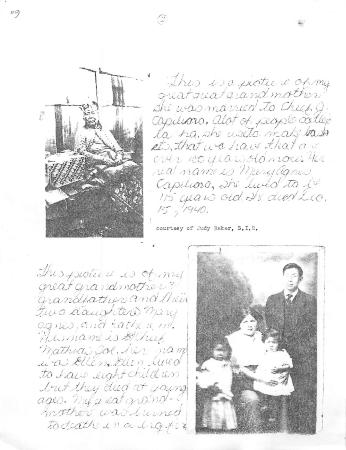 This is a picture of my
great great grand mother
she was married to Chief J.
Capilano. A lot of people called
she use to make bask
ets, that we have that are
over years old or more. Her
real name is Mary Agnes
Capilano, she lived to be
115 years old she died Dec.
15, 1940.
courtesy of Judy Baker, S.I.B.
This picture is of my
great grandmother &
grandfather and their
two daughters Mary
agnes, and
His name is Chief
Mathias Joe, her name
was Ellen, Ellen lived
to have eight children
but they died at young
ages. My great grand-
mother was burned
to death in a big fire